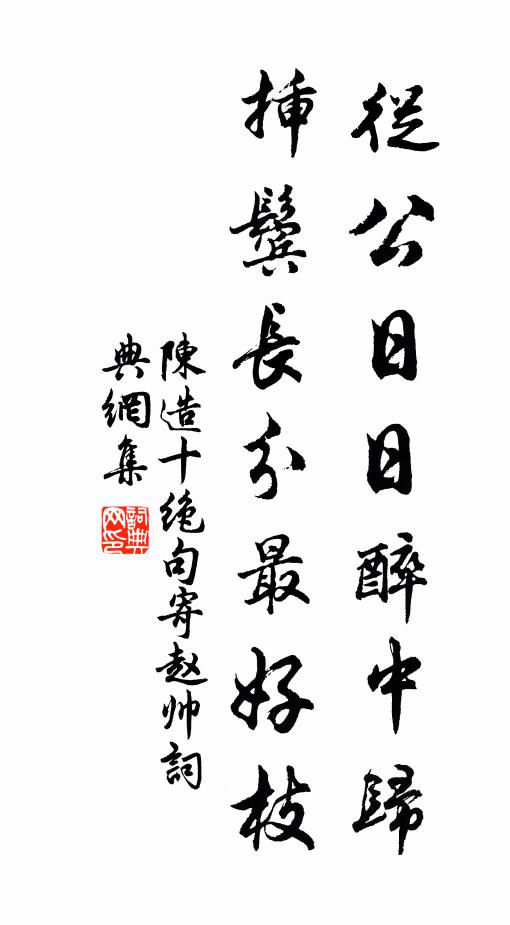 從公日日醉中歸
挿鬢長分最好枝
陳造十绝句寄赵帅詞
典網集
詞典
网印